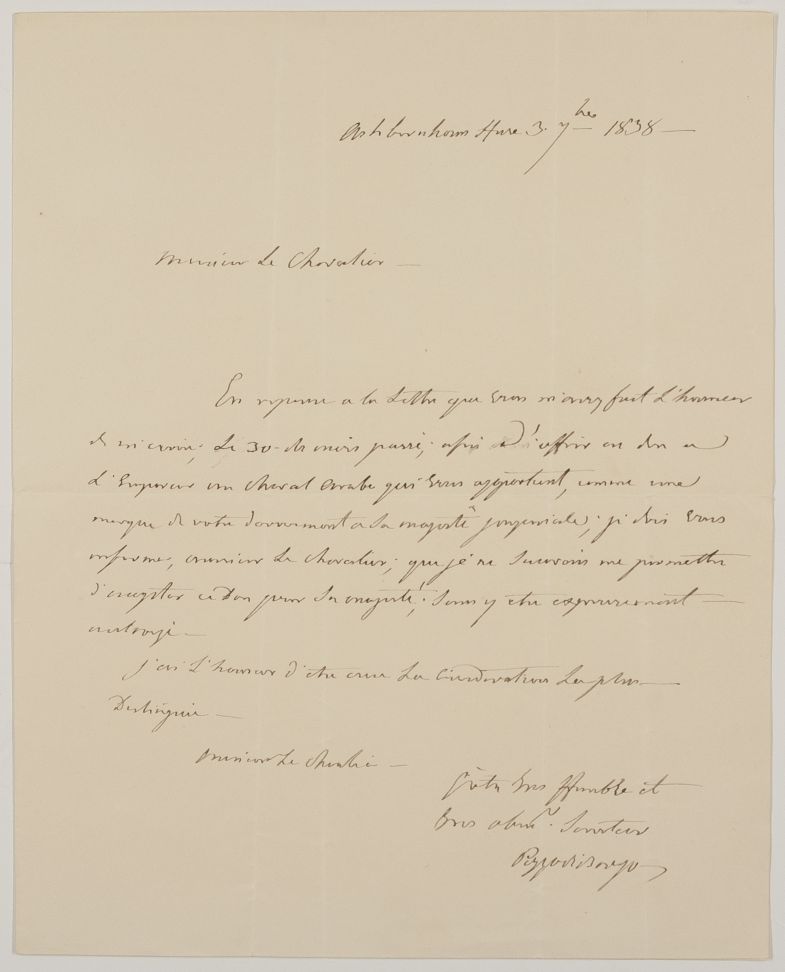 Ashburnham House 3. 7bre 1838
Monsieur Le Chevalier
En reponse a la Lettre que Vous m'avez fait L'honneur
de m'ecrire, Le 30 du mois passé, afin d'offrir en don a
L'Empereur un cheval arabe qui Vous appartient, comme une
marque de votre devouement a Sa majesté Imperiale, je dois Vous
informer, monsieur Le chevalier, que je ne Saurois me permettre
d'accepter ce Don pour Sa majesté, Sans y etre expressement
autorisé.
J'ai L'honneur d'etre avec La Consideration La plus
Distinguée
Monsieur Le chevalier
Votre tres Humble et
tres obeist. Serviteur
Pozzo di Borgo